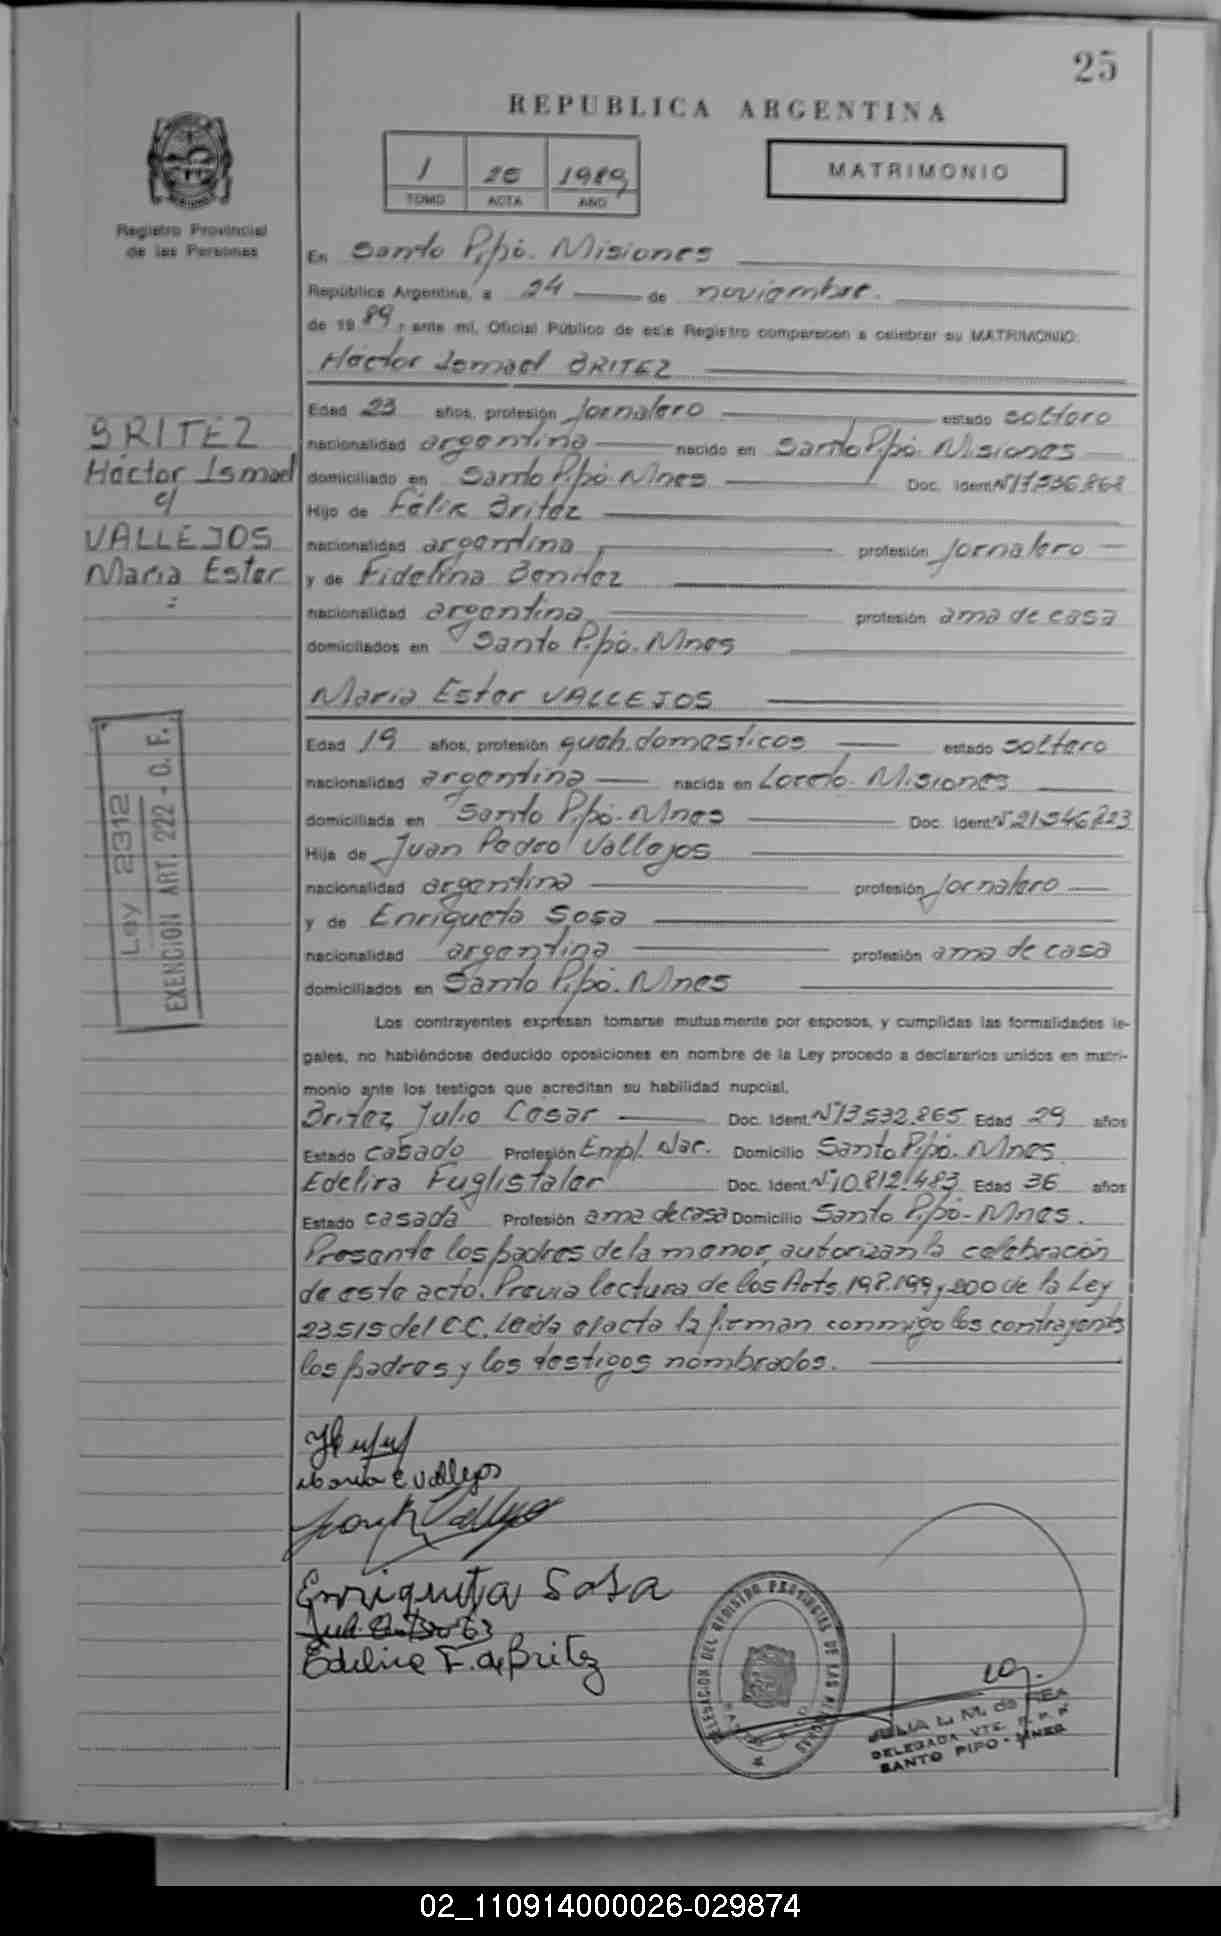 25
REPUBLICA ARGENTINA
1 25 1989
TOMO ACTA AÑO
MATRIMONIO
Registro Provincial
de las Personas
En Santo Pipó. Misiones
República Argentina, a 24 de noviembre.
de 19 89, ante mí, Oficial Público de este Registro comparecen a celebrar su MATRIMONIO:
Héctor Ismael BRITEZ
Edad 23 años, profesión jornalero estado soltero
nacionalidad argentina nacido en Santo Pipó. Misiones
domiciliado en Santo Pipó. Mnes Doc. Ident.
Hijo de Félix Britez
nacionalidad argentina profesión jornalero
y de Fidelina Benitez
nacionalidad argentina profesión ama de casa
domiciliados en Santo Pipó. Mnes
BRITEZ
Héctor Ismael
c/
VALLEJOS
Maria Ester
=
Maria Ester VALLEJOS
Edad 19 años, profesión queh. domesticos estado soltero
nacionalidad argentina nacida en Loreto. Misiones
domiciliada en Santo Pipó. Mnes Doc. Ident.
Hija de Juan Pedro Vallejos
nacionalidad argentina profesión jornalero
y de Enriqueta Sosa
nacionalidad argentina profesión ama de casa
domiciliados en Santo Pipó. Mnes
Ley 2312
EXENCION ART. 222 - O. F.
Los contrayentes expresan tomarse mutuamente por esposos, y cumplidas las formalidades le-
gales, no habiéndose deducido oposiciones en nombre de la Ley procedo a declararlos unidos en matri-
monio ante los testigos que acreditan su habilidad nupcial.
Britez, Julio Cesar Doc. Ident. Nº 13.532.865 Edad 29 años
Estado casado Profesión Empl. Nac. Domicilio Santo Pipó. Mnes
Edelira Fuglistaler Doc. Ident. Nº 10.812.483 Edad 36 años
Estado casada Profesión ama de casa Domicilio Santo Pipó - Mnes.
Presente los padres de la menor, autorizan la celebración
de este acto. Previa lectura de los Arts. 198.199 y 200 de la Ley
23515 del C.C. Leida el acta la firman conmigo los contrayentes
los padres y los testigos nombrados.
Maria E Vallejos
Enriqueta Sosa
Edelira F. de Britez
DELEGACION DEL REGISTRO PROVINCIAL DE LAS PERSONAS
JULIA L. M. de REA
DELEGADA VTE. R. P. P.
SANTO PIPO - MNES
02_110914000026-029874